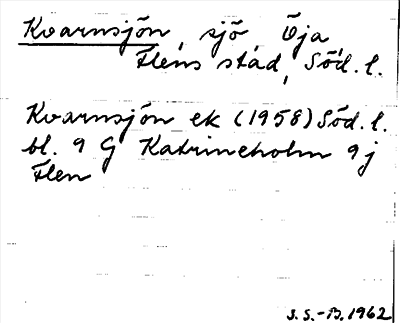 Kvarnsjön, sjö, Öja,
Flens stad, Söd. l.
Kvarnsjön ek (1958) Söd. l.
bl. 9 G Katrineholm 9j
Flen
S. S.-B. 1962